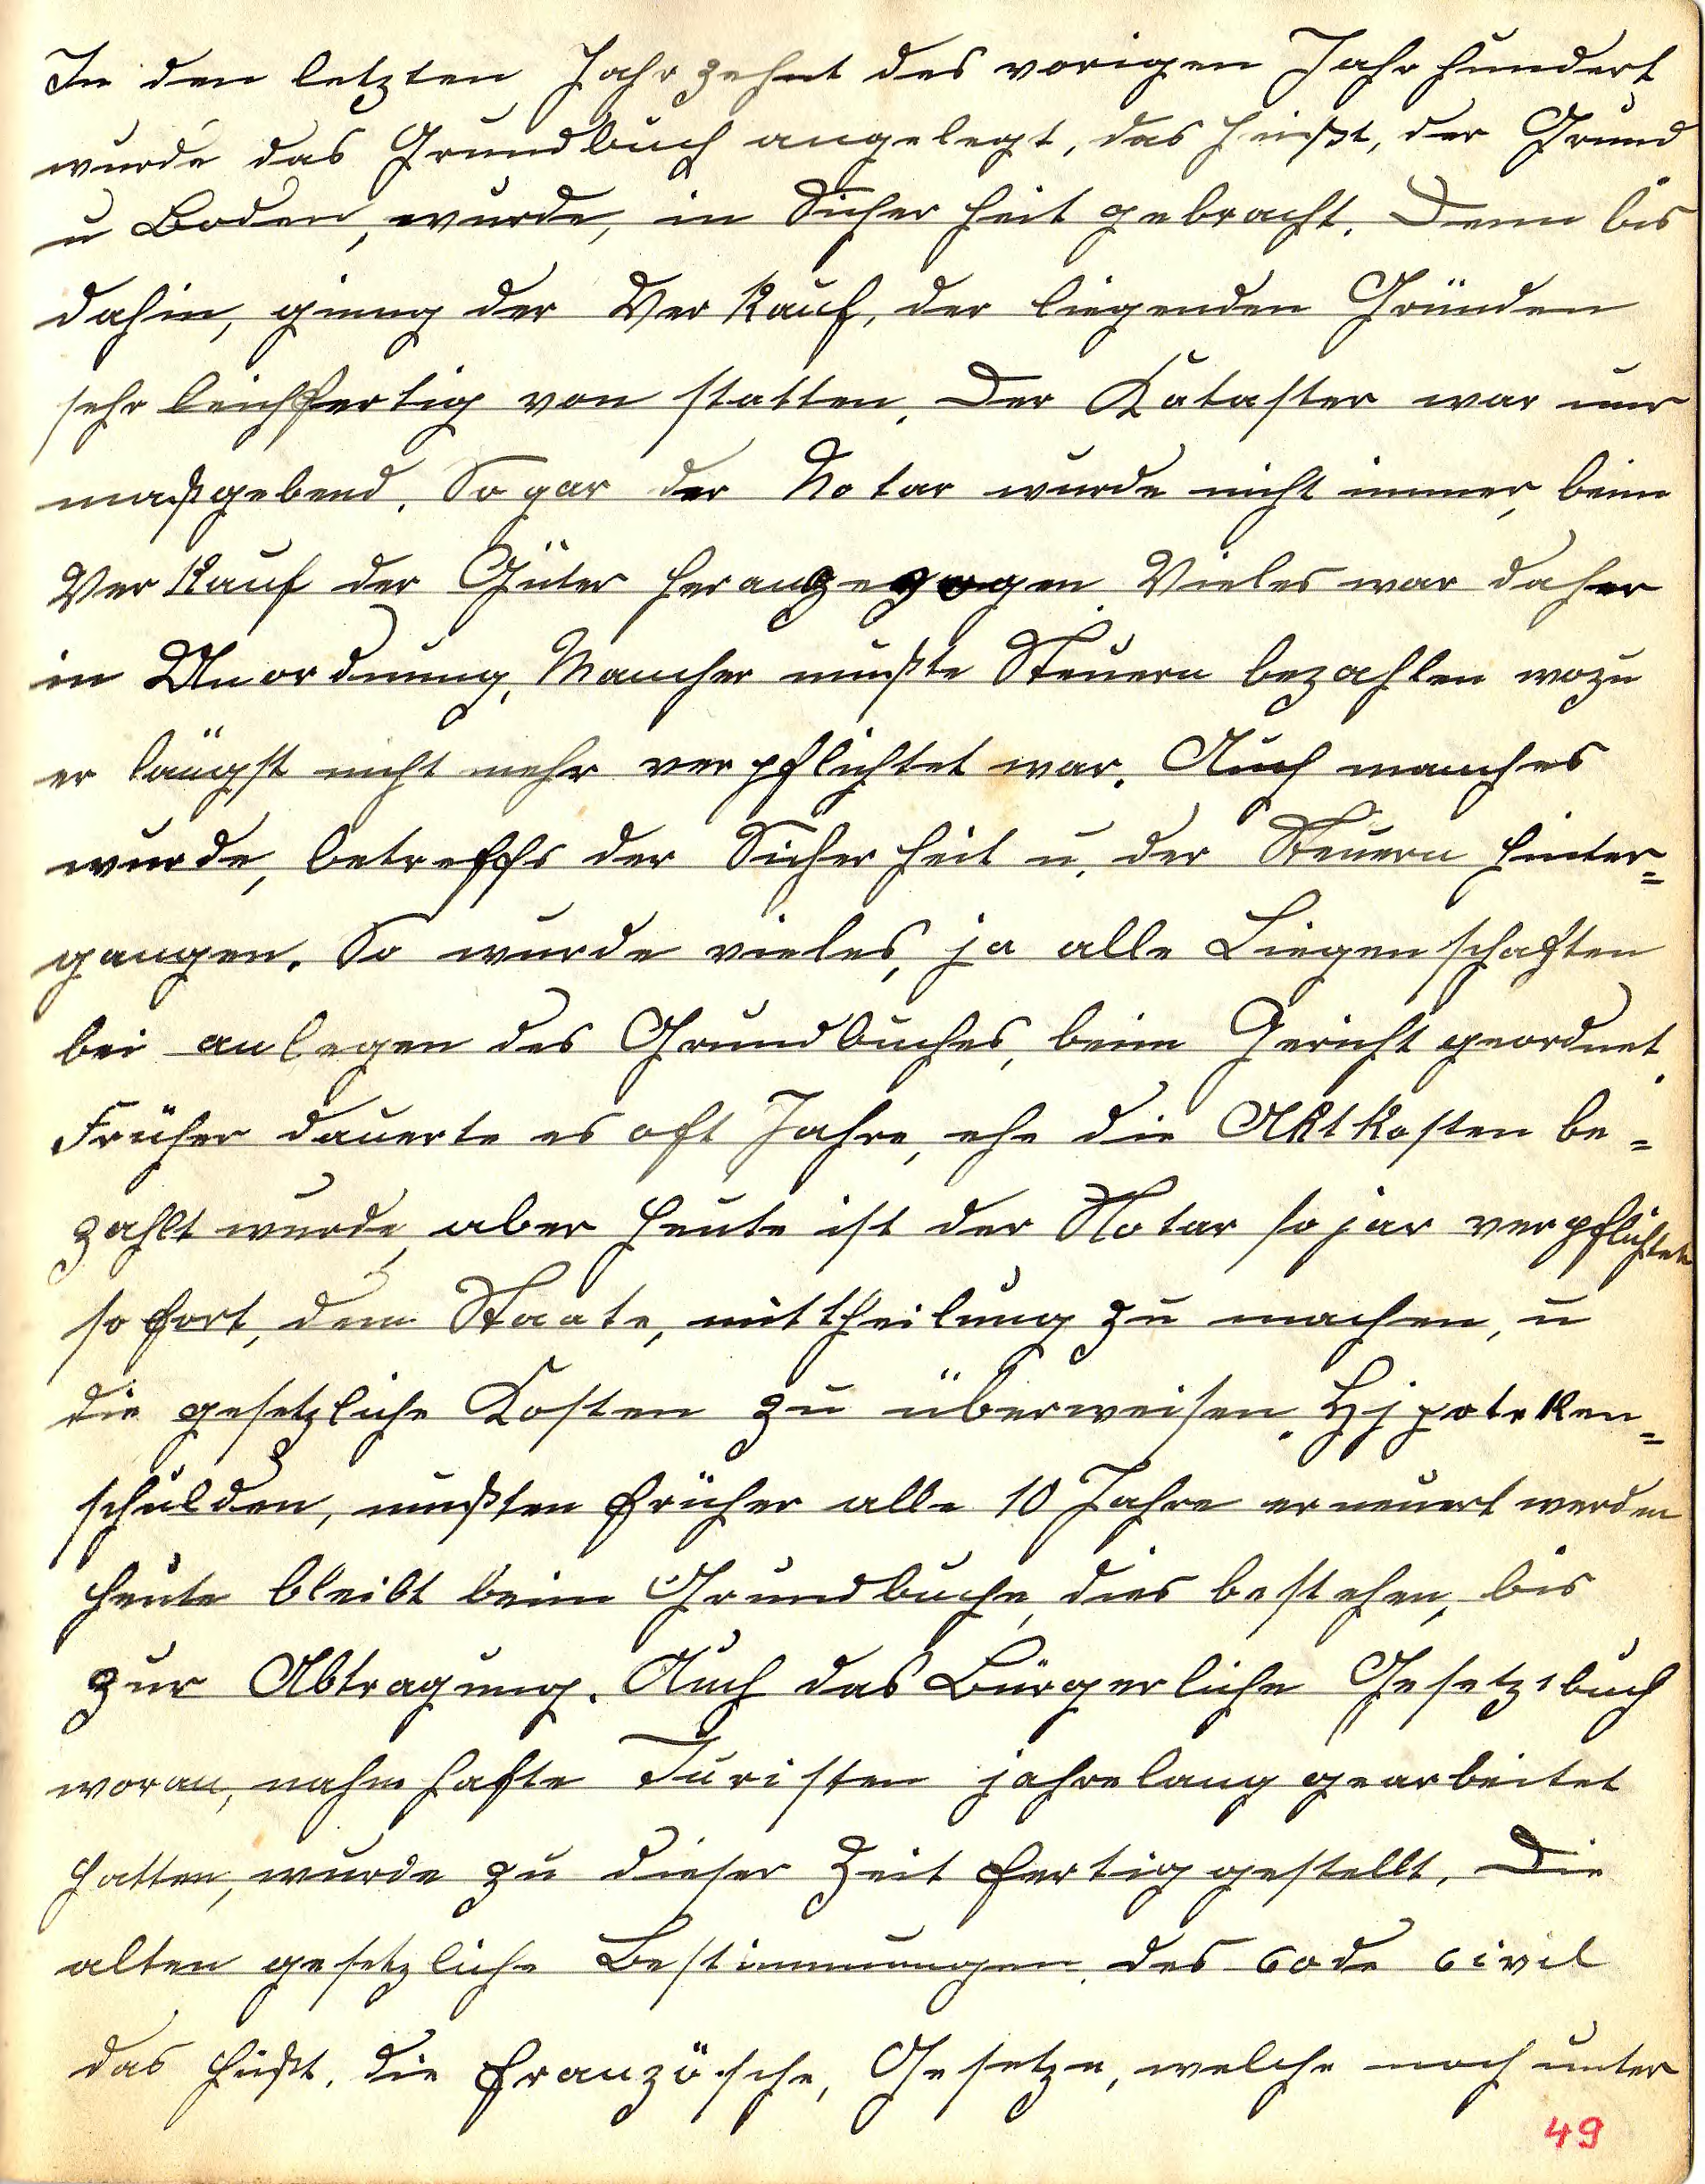 In den letzten Jahrzehnt des vorigen Jahrhundert
wurde das Grundbuch angelegt, das heißt, der Grund
u Boden, wurde, in Sicherheit gebracht. Denn bis
dahin, gieng der Verkauf, der liegenden Gründen
sehr leichfertig von statten. Der Kataster war nur
maßgebend. Sogar der Notar wurde nicht immer, beim
Verkauf der Güter herangezogen. Vieles war daher
in Unordnung, Mancher mußte Steuern bezahlen wozu
er längst nicht mehr verpflichtet war. Auch manches
wurde, betreffs der Sicherheit u. der Steuern hinter=
gangen. So wurde vieles, ja alle Liegenschaften
bei anlegen des Grundbuches, beim Gericht geordnet.
Früher dauerte es oft Jahre, ehe die Aktkosten be=
zahlt wurde, aber heute ist der Notar sojar verpflichtet
sofort, dem Staate, mittheilung zu machen, u
die gesetzliche Kosten zu überweisen. Hjpoteken=
schulden, mußten früher alle 10 Jahre erneuert werden
heute bleibt beim Grundbuche, dies bestehen, bis
zur Abtragung. Auch das Bürgerliche Gesetzbuch
woran, nahmhafte Juristen jahrelang gearbeitet
hatten, wurde zu dieser Zeit fertiggestellt. Die
alten gesetzliche Bestimmungen des code civil
das heißt, die französche, Gesetze, welche noch unter
49